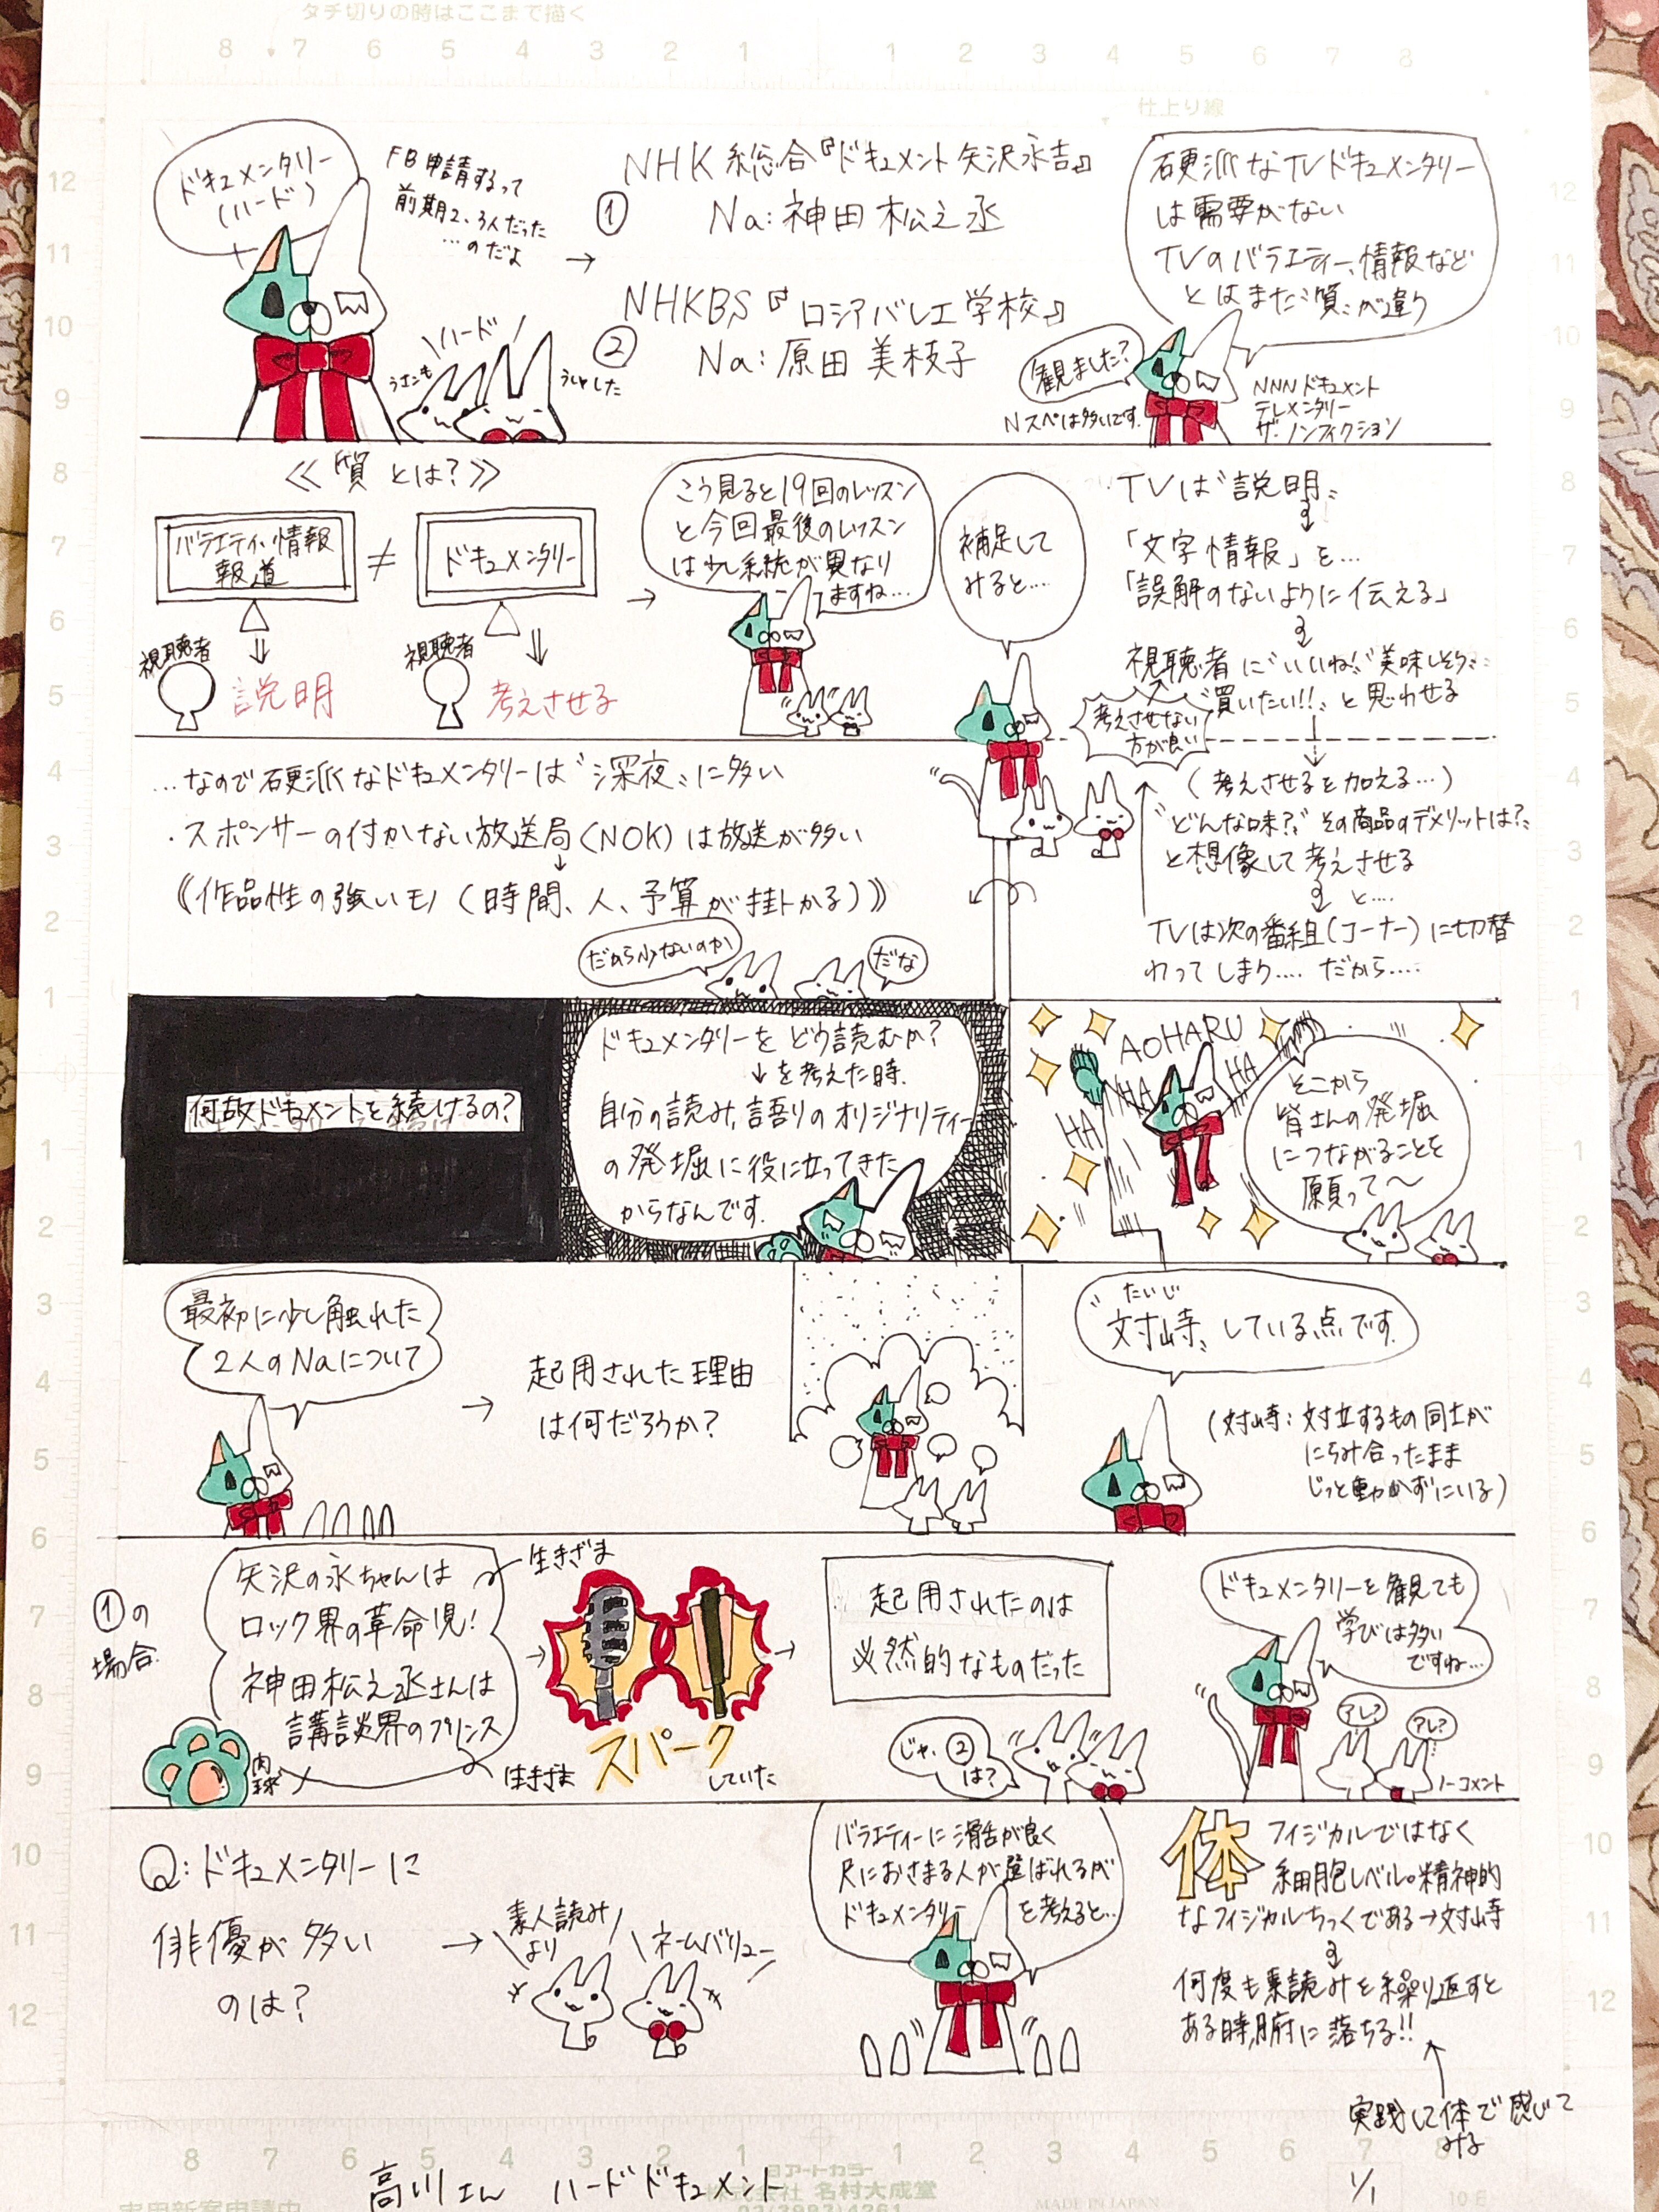 タチ切りの時はここまで描く
仕上り線
ドキュメンタリー
(ハード)
FB申請するって
前期2、3人だった
…のだよ
→
① NHK総合『ドキュメント矢沢永吉』
Na:神田松之丞
② NHKBS『ロシアバレエ学校』
Na:原田美枝子
ハード
硬派なTVドキュメンタリー
は需要がない
TVのバラエティー、情報など
とはまた〝質〟が違う
観ました?
Nスペは多いです。
NNNドキュメント
テレメンタリー
ザ・ノンフィクション
《質とは?》
バラエティ、情報
報道
≠
ドキュメンタリー
視聴者
説明
視聴者
考えさせる
→
こう見ると19回のレッスン
と今回最後のレッスン
は少し系統が異なり
ますね…
補足して
みると…
TVは〝説明〟
「文字情報」を…
「誤解のないように伝える」
視聴者に〝いいね!〟〝美味しそう〟
〝買いたい!!〟と思わせる
考えさせない
方が良い
(考えさせるを加える…)
〝どんな味?〟その商品のデメリットは?〟
と想像して考えさせる
と…
TVは次の番組(コーナー)に切替
わってしまう…だから…
…なので硬派なドキュメンタリーは〝深夜〟に多い
・スポンサーの付かない放送局(NOK)は放送が多い
《作品性の強いモノ(時間、人、予算が掛かる)》
だから少ないのか
だな
何故ドキュメントを続けるの?
ドキュメンタリーをどう読むか?
↓を考えた時、
自分の読み、語りのオリジナリティー
の発掘に役に立ってきた
からなんです。
AOHARU
HA HA HA
そこから
皆さんの発掘
につながることを
願って〜
最初に少し触れた
2人のNaについて
→
起用された理由
は何だろうか?
たいじ
〝対峙〟している点です。
(対峙:対立するもの同士が
にらみ合ったまま
じっと動かずにいる)
①の
場合
矢沢の永ちゃんは
ロック界の革命児!
神田松之丞さんは
講談界のプリンス
肉球
生きざま
生きざま
スパーク
していた
起用されたのは
必然的なものだった
じゃ、②
は?
ドキュメンタリーを観ても
学びは多い
ですね…
アレ?
アレ?
ノーコメント
Q:ドキュメンタリーに
俳優が多い
のは?
→
素人読み
より
ネームバリュー
バラエティーに滑舌が良く
尺におさまる人が選ばれるが
ドキュメンタリーを考えると…
体 フィジカルではなく
細胞レベル。精神的
なフィジカルちっくである→対峙
何度も素読みを繰り返すと
ある時、腑に落ちる!!
実践して体で感じて
みる
高川さん ハードドキュメント
1/1
アートカラー
株式会社 名村大成堂
MADE IN JAPAN